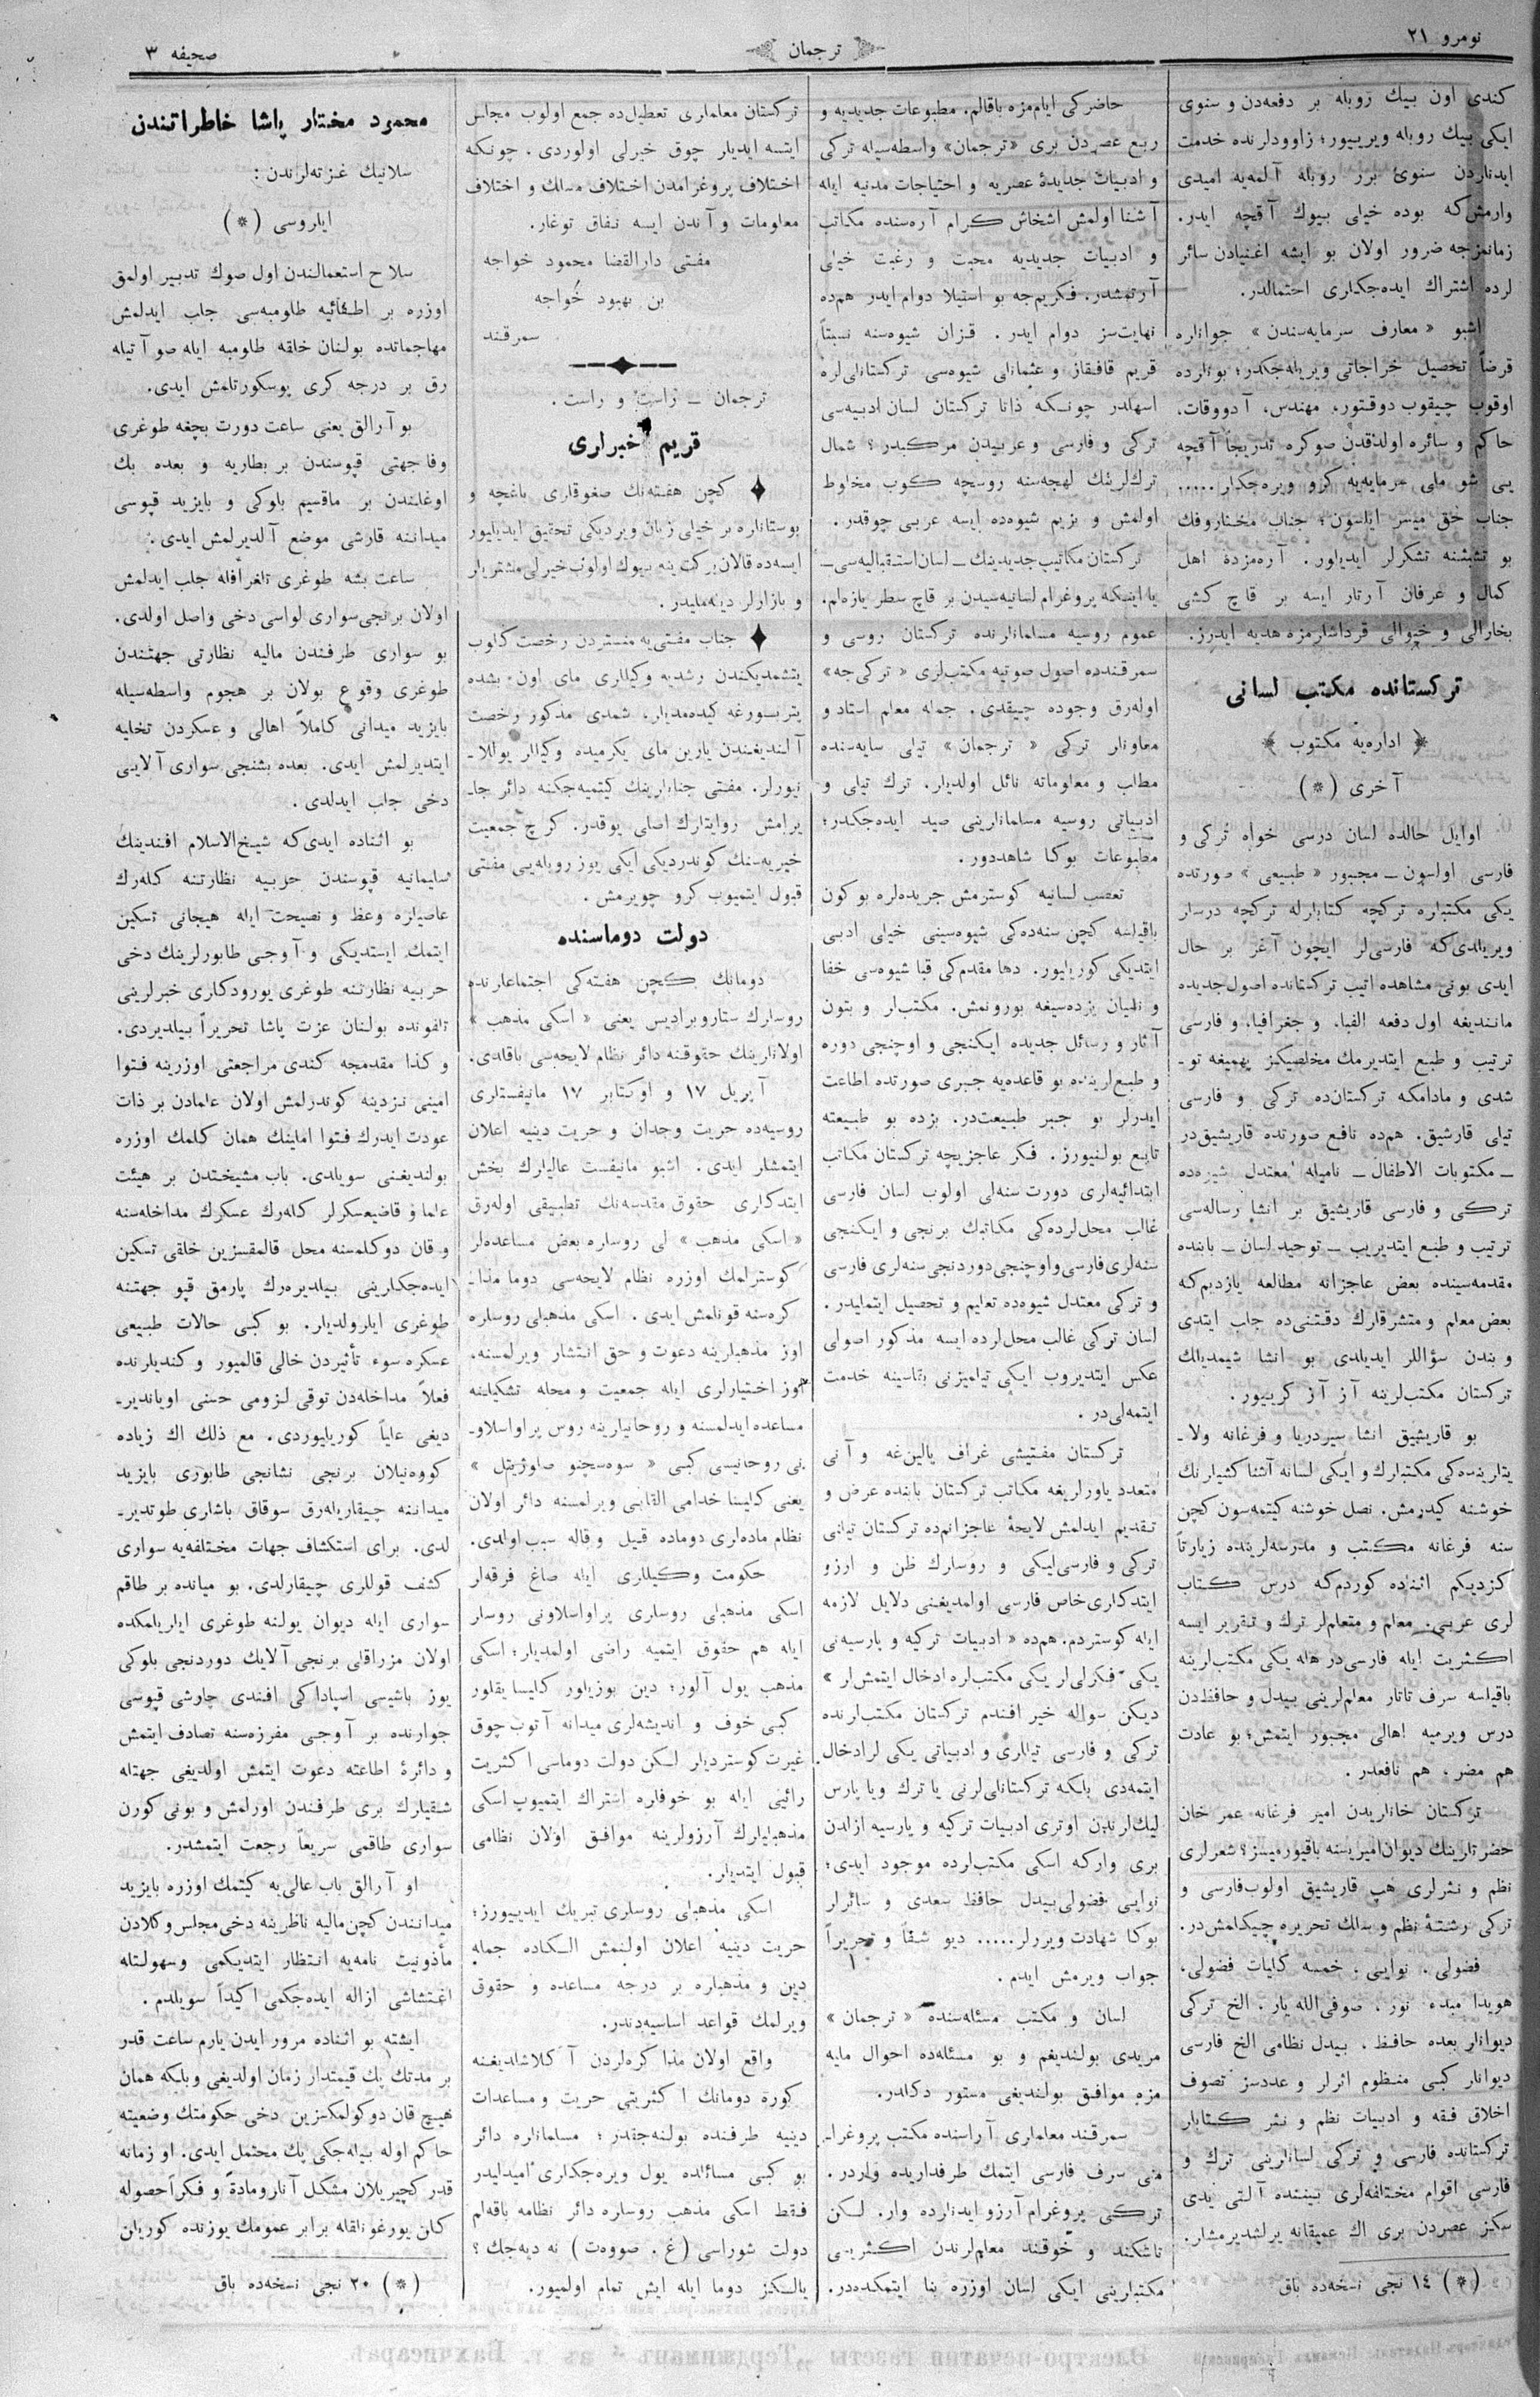 نومرو ٢١
ترجمان
صحیفه ٣
كندی اون بیك روبله بر دفعه‌دن و سنوی
ایكی بیك روبله ویرییور؛ زاوودلرنده خدمت
ایدنلردن سنوی برر روبله آلمه‌یه امیدی
وارمش‌كه بوده خیلی بیوك آقچه ایدر.
زمانمزجه ضرور اولان بو ایشه اغنیادن سائر
لرده اشتراك ایده‌جكلری احتمالدر.
اشبو « معارف سرمایه‌سندن » جوانلره
قرضاً تحصیل خراجاتی ویریله‌جكدر؛ بونلرده
اوقوب چیقوب دوقتور، مهندس، آدووقات،
حاكم و سائره اولدقدن صوكره تدریجاً آقچه
یی شو ملی سرمایه‌یه كرو ویره‌جكلر.....
جناب حق میسر ایلسون؛ جناب مختاروفك
بو تشبثنه تشكرلر ایدیلور. آره‌مزده اهل
كمال و عرفان آرتار ایسه بر قاچ كشی
بخارالی و خیوالی قرداشلرمزه هدیه ایدرز.
تركستانده مكتب لسانی
﴿ اداره‌یه مكتوب ﴾
آخری (*)
اوایل حالده لسان درسی خواه تركی و
فارسی اولسون ــ مجبور « طبیعی » صورتده
یكی مكتبلره تركچه كتابلرله تركچه درسلر
ویریلدی‌كه فارسی‌لر ایچون آغر بر حال
ایدی بونی مشاهده اتیب تركستانده اصول جدیده
مانندیغه اول دفعه الفبا، و جغرافیا، و فارسی
ترتیب و طبع ایتدیرمك مخلصیكز پهمیغه تو ـ
شدی و مادامكه تركستان‌ده تركی و فارسی
تیلی قارشیق. هم‌ده نافع صورتده قاریشیق‌در
ــ مكتوبات الاطفال ــ نامیله معتدل شیوه‌ده
تركی و فارسی قاریشیق بر انشا رساله‌سی
ترتیب و طبع ایتدیریب ــ توحید لسان ــ بابنده
مقدمه‌سینده بعض عاجزانه مطالعه یازدیم‌كه
بعض معلم و متشرقلرك دقتنی‌ده جلب ایتدی
و بندن سؤاللر ایدیلدی بو انشا شیمدیلك
تركستان مكتب‌لرینه آز آز كریبیور.
بو قاریشیق انشا سیردریا و فرغانه ولا ـ
یتلرینده‌كی مكتبلرك و ایكی لسانه آشنا كشیلرنك
خوشنه كیدرمش. نصل خوشنه كیتمه‌سون كچن
سنه فرغانه مكتب و مدرسه‌لرینده زیارتاً
كزدیكم اثناده كوردم‌كه درس كتاب
لری عربی. معلم و متعلم‌لر ترك و تقریر ایسه
اكثریت ایله فارسی‌در هله یكی مكتب‌لرینه
باقیلسه سرف تاتار معلم‌لرینی بیدل و حافظ‌دن
درس ویرمیه اهالی مجبور ایتمش؛ بو عادت
هم مضر، هم نافعدر.
تركستان خانلریدن امیر فرغانه عمر خان
حضرتلرینك دیوان امیریسنه باقیورمیسز؟ شعرلری
نظم و نثرلری هپ قاریشیق اولوب‌فارسی و
تركی رشتۀ نظم و سلك تحریره چیكلمش‌در.
فضولی، نوایی، خمسه كلیات فضولی،
هویدا مبدء نور، صوفی‌الله یار، الخ تركی
دیوانلر بعده حافظ، بیدل نظامی الخ فارسی
دیوانلر كبی منظوم اثرلر و عددسز تصوف
اخلاق فقه و ادبیات نظم و نثر كتابلر
تركستانده فارسی و تركی لسانلرینی ترك و
فارسی اقوام مختلفه‌لری بیننده آلتی یدی
سكیز عصردن بری اك عمیقانه یرلشدیرمشلر.
(*) ١٤ نجی نسخه‌ده باق
حاضركی ایام‌مزه باقالم. مطبوعات جدیدیه و
ربع عصردن بری «ترجمان» واسطه‌سیله تركی
و ادبیات جدیدۀ عصریه و احتیاجات مدنیه ایله
آشنا اولمش اشخاش كرام آره‌سنده مكاتب
و ادبیات جدیدیه محبت و رغبت خیلی
آرتمشدر. فكریم‌جه بو استیلا دوام ایدر هم‌ده
نهایت‌سز دوام ایدر. قزان شیوه‌سنه نسبتاً
قریم قافقاز و عثمانلی شیوه‌سی تركستانلی‌لره
اسهلدر چونكه ذاتا تركستان لسان ادبیه‌سی
تركی و فارسی و عربیدن مركبدر؟ شمال
ترك‌لرینك لهجه‌سنه روسچه كوب مخلوط
اولمش و بزیم شیوه‌ده ایسه عربی چوقدر.
تركستان مكاتیب جدیدینك ــ لسان استقبالیه‌سی ــ
یا اینكه پروغرام لسانیه‌سیدن بر قاچ سطر یازه‌لم.
عموم روسیه مسلمانلرنده تركستان روسی و
سمرقندده اصول صوتیه مكتب‌لری « تركی‌جه»
اوله‌رق وجوده چیقدی. جمله معلم استاد و
معاونلر تركی « ترجمان » تیلی سایه‌سنده
مطالب و معلوماته نائل اولدیلر. ترك تیلی و
ادبیاتی روسیه مسلمانلرینی صید ایده‌جكدر؛
مطبوعات بوكا شاهددور.
تعصب لسانیه كوسترمش جریده‌لره بو كون
باقیلسه كچن سنه‌ده‌كی شیوه‌سینی خیلی ادبی
ایتدیكی كوریلیور. دها مقدم‌كی قبا شیوه‌سی خفا
و نسیان پزده‌سیغه بورونمش. مكتب‌لر و بتون
آثار و رسائل جدیده ایكنجی و اوچنجی دوره
و طبع‌لرینده بو قاعده‌یه جبری صورتده اطاعت
ایدرلر بو جبر طبیعت‌در. بزده بو طبیعته
تابع بولنیورز. فكر عاجزیچه تركستان مكاتب
ابتدائیه‌لری دورت سنه‌لی اولوب لسان فارسی
غالب محل‌لرده‌كی مكاتبك برنجی و ایكنجی
سنه‌لری فارسی و اوچنجی دوردنجی سنه‌لری فارسی
و تركی معتدل شیوه‌ده تعلیم و تحصیل ایتملیدر.
لسان تركی غالب محل‌لرده ایسه مذكور اصولی
عكس ایتدیروب ایكی تیلمیزنی بقاسینه خدمت
ایتمه‌لی‌در.
تركستان مفتیشی غراف پالین‌غه و آنی
متعدد یاورلریغه مكاتب تركستان بابنده عرض و
تقدیم ایدلمش لایحۀ عاجزانم‌ده تركستان تیلنی
تركی و فارسی‌لیكی و روسلرك ظن و ارزو
ایتدكلری خاص فارسی اولمدیغنی دلایل لازمه
ایله كوستردم. هم‌ده « ادبیات تركیه و پارسیه‌نی
یكی فكرلی‌لر یكی مكتب‌لره ادخال ایتمش‌لر »
دیكن سواله خیر افندم تركستان مكتب‌لرنده
تركی و فارسی تیللری و ادبیاتی یكی لر ادخال
ایتمه‌دی بلكه تركستانلی‌لرنی یا ترك ویا پارس
لیك‌لرندن اوتری ادبیات تركیه و پارسیه ازلدن
بری واركه اسكی مكتب‌لرده موجود ایدی؛
نوایی فضولی بیدل حافظ سعدی و سائرلر
بوكا شهادت ویررلر..... دیو شفاً و تحریراً
جواب ویرمش ایدم.
لسان و مكتب مسئله‌سنده « ترجمان »
مریدی بولندیغم و بو مسئله‌ده احوال ملیه
مزه موافق بولندیغی مستور دكلدر.
سمرقند معلملری آراسنده مكتب پروغرا ـ
منی سرف فارسی ایتمك طرفداریده واردر.
تركی پروغرام آرزو ایدنلرده وار. لكن
تاشكند و خوقند معلم‌لرندن اكثریسی
مكتبلرینی ایكی لسان اوزره بنا ایتمكده‌در.
تركستان معلملری تعطیل‌ده جمع اولوب مجلس
ایتسه ایدیلر چوق خیرلی اولوردی. چونكه
اختلاف پروغرامدن اختلاف مسلك و اختلاف
معلومات و آندن ایسه نفاق توغار.
مفتی دارالقضا محمود خواجه
بن بهبود خواجه
سمرقند
ترجمان ــ راست و راست.
قریم خبرلری
كچن هفته‌نك صغوقلری باغچه و
بوستانلره بر خیلی زیان ویردیكی تحقیق ایدیلیور
ایسه‌ده قالان بركت ینه بیوك اولوب خیرلی مشتریلر
و بازارلر دینه‌ملیدر.
جناب مفتی‌یه منستردن رخصت كلوب
یتشمدیكندن رشدیه وكیللری مای اون بشده
پتربورغه كیده‌مدیلر. شمدی مذكور رخصت
آلندیغندن یارین مای یكرمیده وكیللر یوللا ـ
نیورلر. مفتی جنابلرینك كیتمیه‌جكنه دائر جا ـ
یرامش روایتلرك اصلی یوقدر. كرچ جمعیت
خیریه‌سنك كوندردیكی ایكی یوز روبله‌یی مفتی
قبول ایتمیوب كرو چویرمش.
دولت دوماسنده
دومانك كچن هفته‌كی اجتماعلرنده
روسلرك ستاروبرادیس یعنی « اسكی مذهب »
اولانلرینك حقوقنه دائر نظام لایحه‌سی باقلدی.
آپریل ١٧ و اوكتابر ١٧ مانیفستلری
روسیه‌ده حریت وجدان و حریت دینیه اعلان
ایتمشلر ایدی. اشبو مانیفست عالیلرك بخش
ایتدكلری حقوق مقدسه‌نك تطبیقی اوله‌رق
« اسكی مذهب » لی روسلره بعض مساعده‌لر
كوسترلمك اوزره نظام لایحه‌سی دوما مذا ـ
كره‌سنه قونلمش ایدی. اسكی مذهبلی روسلره
اوز مذهبلرینه دعوت و حق انتشار ویرلمسنه،
اوز اختیارلری ایله جمعیت و محله تشكیلینه
مساعده ایدلمسنه و روحانیلرینه روس پراواسلاو ـ
نی روحانیسی كبی « سوه‌سچنو صلوژیتل »
یعنی كلیسا خدامی القابی ویرلمسنه دائر اولان
نظام ماده‌لری دوماده قیل و قاله سبب اولدی.
حكومت وكیللری ایله صاغ فرقه‌لر
اسكی مذهبلی روسلری پراواسلاونی روسلر
ایله هم حقوق ایتمیه راضی اولمدیلر؛ اسكی
مذهب یول آلور؛ دین بوزیلور كلیسا یقلور
كبی خوف و اندیشه‌لری میدانه آتوب چوق
غیرت كوستردیلر لكن دولت دوماسی اكثریت
رائیی ایله بو خوفلره اشتراك ایتمیوب اسكی
مذهبلیلرك آرزولرینه موافق اولان نظامی
قبول ایتدیلر.
اسكی مذهبلی روسلری تبریك ایدییورز؛
حریت دینیه اعلان اولنمش الكاده جمله
دین و مذهبلره بر درجه مساعده و حقوق
ویرلمك قواعد اساسیه‌دندر.
واقع اولان مذاكره‌لردن آكلاشلدیغنه
كوره دومانك اكثریتی حریت و مساعدات
دینیه طرفنده بولنه‌جقدر؛ مسلمانلره دائر
بو كبی مسائلده یول ویره‌جكلری امیدلیدر
فقط اسكی مذهب روسلره دائر نظامه باقه‌لم
دولت شوراسی (غ. صووه‌ت) نه دیه‌جك؟
یالكز دوما ایله ایش تمام اولمیور.
محمود مختار پاشا خاطراتندن
سلانیك غزته‌لرندن:
ایاروسی (*)
سلاح استعمالندن اول صوك تدبیر اولمق
اوزره بر اطفائیه طلومبه‌سی جلب ایدلمش
مهاجماتده بولنان خلقه طلومبه ایله صو آتیله
رق بر درجه كری پوسكورتلمش ایدی.
بو آرالق یعنی ساعت دورت بچغه طوغری
وفا جهتی قپوسندن بر بطاریه و بعده بك
اوغلندن بر ماقسیم بلوكی و بایزید قپوسی
میداننه قارشی موضع آلدیرلمش ایدی.
ساعت بشه طوغری تلغرافله جلب ایدلمش
اولان برنجی سواری لواسی دخی واصل اولدی.
بو سواری طرفندن مالیه نظارتی جهتندن
طوغری وقوع بولان بر هجوم واسطه‌سیله
بایزید میدانی كاملاً اهالی و عسكردن تخلیه
ایتدیرلمش ایدی. بعده بشنجی سواری آلایی
دخی جلب ایدلدی.
بو اثناده ایدی‌كه شیخ‌الاسلام افندینك
سلیمانیه قپوسندن حربیه نظارتنه كله‌رك
عاصیلره وعظ و نصیحت ایله هیجانی تسكین
ایتمك ایستدیكی و آوجی طابورلرینك دخی
حربیه نظارتنه طوغری یورودكلری خبرلرینی
تلفونده بولنان عزت پاشا تحریراً بیلدیردی.
و كذا مقدمجه كندی مراجعتی اوزرینه فتوا
امینی نزدینه كوندرلمش اولان علمادن بر ذات
عودت ایدرك فتوا امانینك همان كلمك اوزره
بولندیغنی سویلدی. باب مشیختدن بر هیئت
علما و قاضیعسكرلر كله‌رك عسكرك مداخله‌سنه
و قان دوكلمسنه محل قالمقسزین خلقی تسكین
ایده‌جكلرینی بیلدیره‌رك پارمق قپو جهتنه
طوغری ایلرولدیلر. بو كبی حالات طبیعی
عسكره سوء تأثیردن خالی قالمیور و كندیلرنده
فعلاً مداخله‌دن توقی لزومی حسنی اویاندیر ـ
دیغی علیاً كوریلیوردی. مع ذلك اك زیاده
كووه‌نیلان برنجی نشانجی طابوری بایزید
میداننه چیقاریله‌رق سوقاق باشلری طوتدیر ـ
لدی. برای استكشاف جهات مختلفه‌یه سواری
كشف قوللری چیقارلدی. بو میانده بر طاقم
سواری ایله دیوان یولنه طوغری ایلریلمكده
اولان مزراقلی برنجی آلایك دوردنجی بلوكی
یوز باشیسی اسپاداكی افندی چارشی قپوسی
جوارنده بر آوجی مفرزه‌سنه تصادف ایتمش
و دائرۀ اطاعته دعوت ایتمش اولدیغی جهتله
شقیلرك بری طرفندن اورلمش و بونی كورن
سواری طاقمی سریعاً رجعت ایتمشدر.
او آرالق باب عالی‌یه كیتمك اوزره بایزید
میدانندن كچن مالیه ناظرینه دخی مجلس وكلادن
مأذونیت نامه‌یه انتظار ایتدیكمی وسهولتله
اغتشاشی ازاله ایده‌جكمی اكیداً سویلدم.
ایشته بو اثناده مرور ایدن یارم ساعت قدر
بر مدتك پك قیمتدار زمان اولدیغی وبلكه همان
هیچ قان دوكولمكسزین دخی حكومتك وضعیته
حاكم اوله بیله‌جكی پك محتمل ایدی. او زمانه
قدر كچیریلان مشكل آنلرمادةً و فكراً حصوله
كلن یورغونلقله برابر عمومك یوزنده كوریلن
(*) ٢٠ نجی نسخه‌ده باق